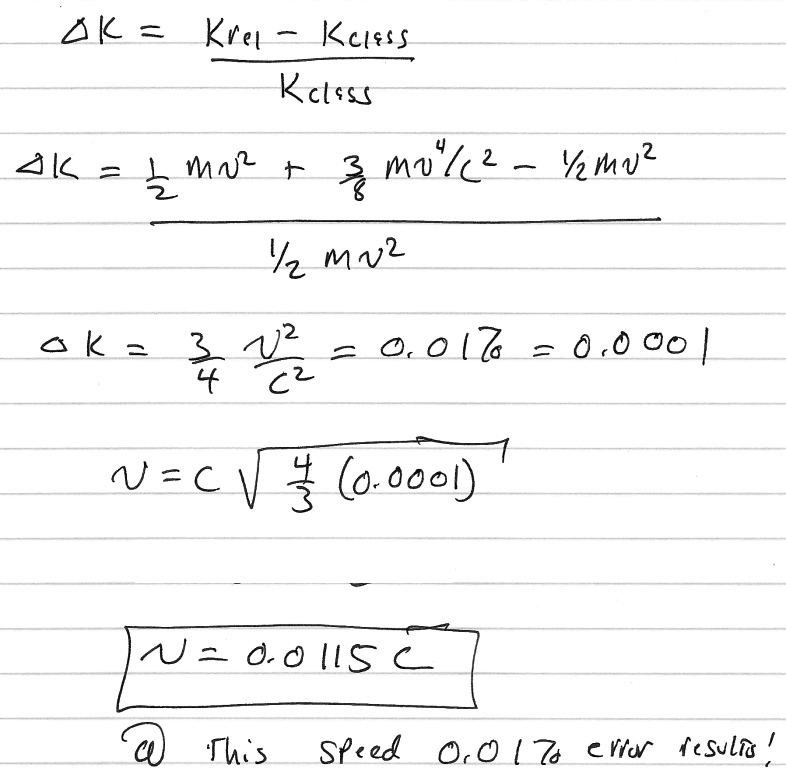 ΔK = Krel - Kclass / Kclass
ΔK = 1/2 mv² + 3/8 mv⁴/c² - 1/2 mv² / 1/2 mv²
ΔK = 3/4 v²/c² = 0.01% = 0.0001
v = c √(4/3 (0.0001))
v = 0.0115 c
@ This speed 0.01% error results!